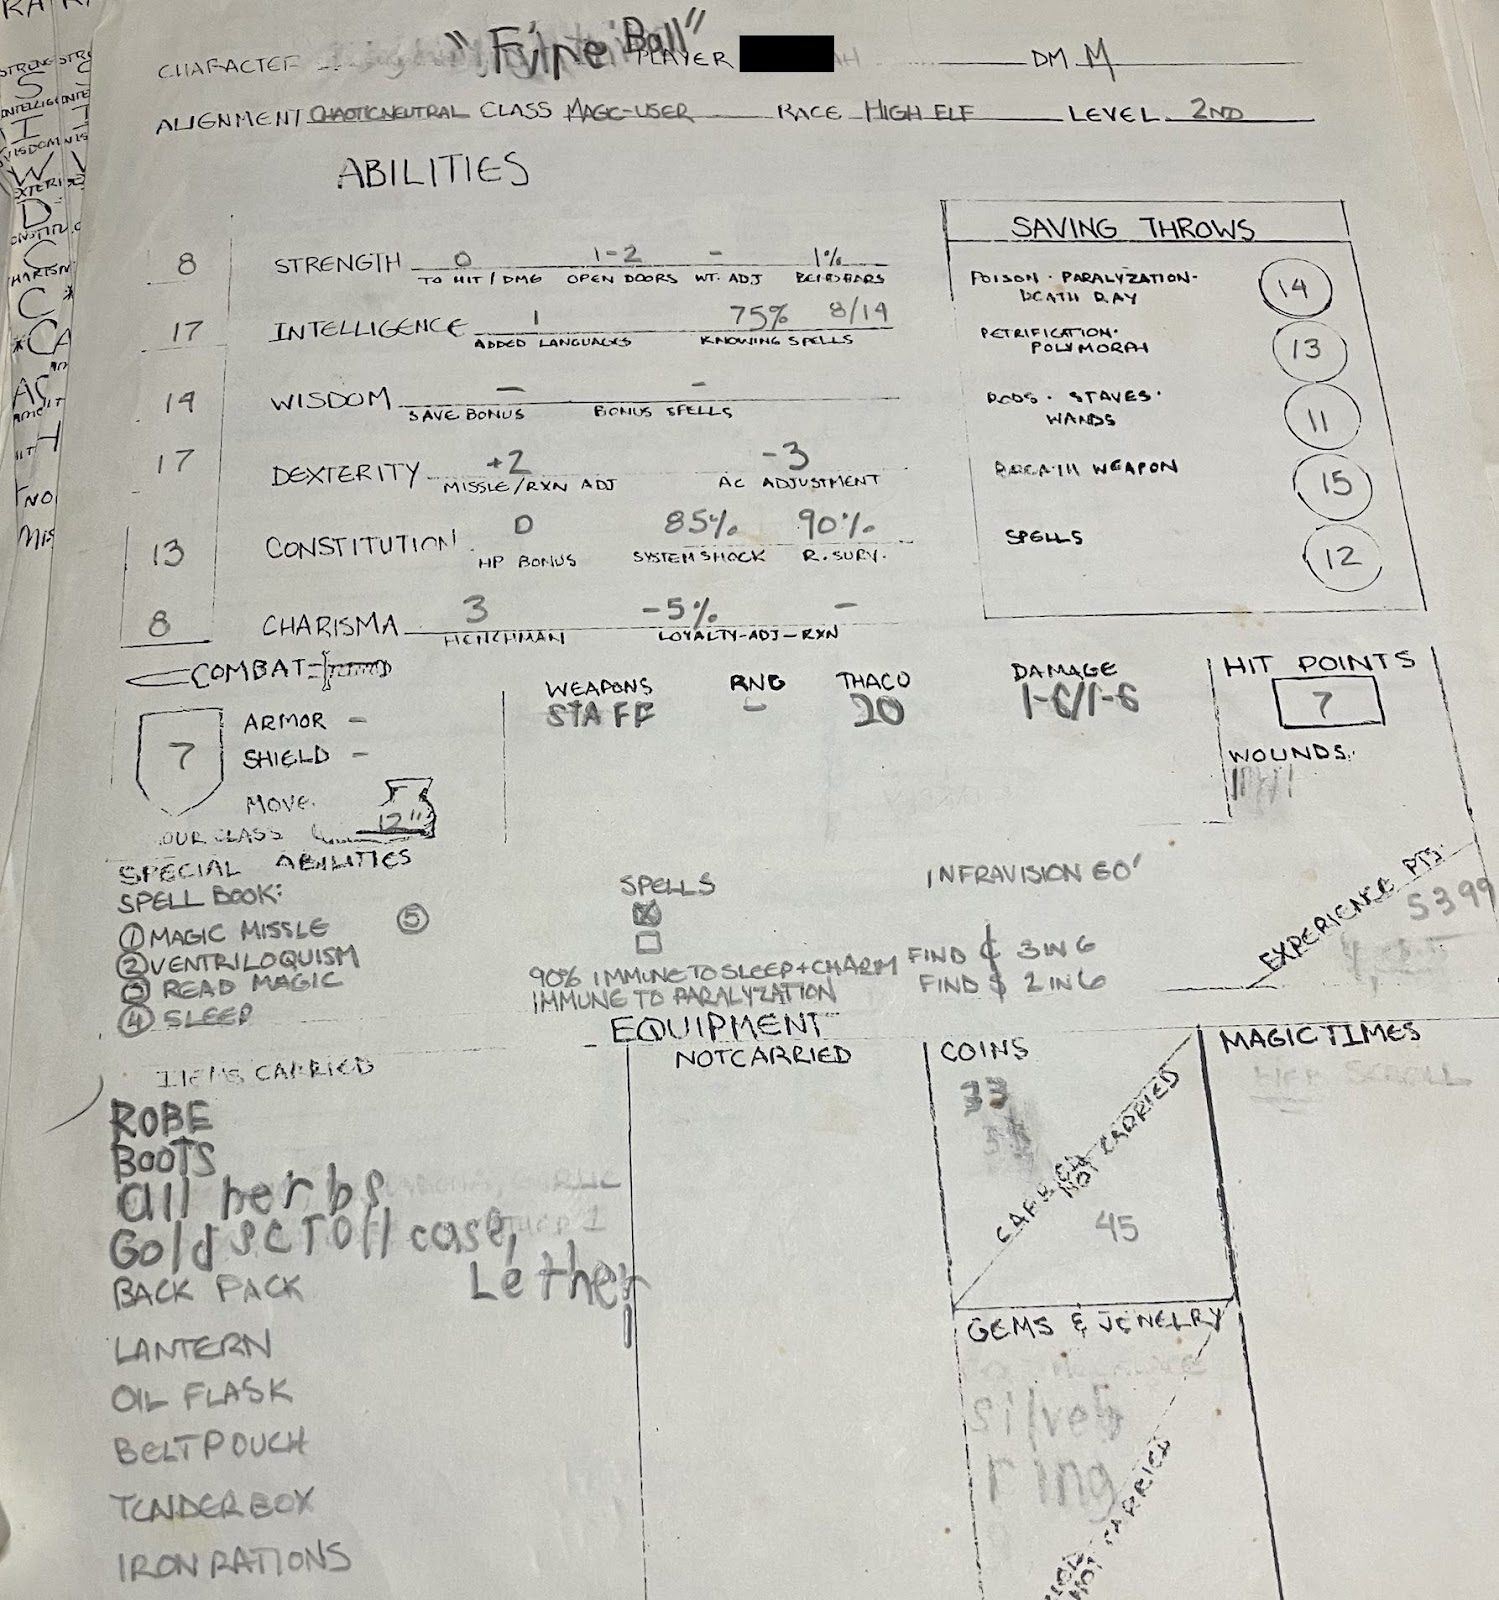 CHARACTER "Fire Ball" PLAYER DM M
ALIGNMENT CHAOTIC NEUTRAL CLASS MAGIC-USER RACE HIGH ELF LEVEL 2ND
ABILITIES
8 STRENGTH 0 1-2 - 1%
TO HIT / DMG OPEN DOORS WT. ADJ BEND BARS
17 INTELLIGENCE 1 75% 8/14
ADDED LANGUAGES KNOWING SPELLS
14 WISDOM - -
SAVE BONUS BONUS SPELLS
17 DEXTERITY +2 -3
MISSLE/RXN ADJ AC ADJUSTMENT
13 CONSTITUTION 0 85% 90%
HP BONUS SYSTEM SHOCK R. SURV.
8 CHARISMA 3 -5% -
HENCHMAN LOYALTY-ADJ-RXN
SAVING THROWS
POISON · PARALYZATION ·
DEATH RAY 14
PETRIFICATION ·
POLYMORPH 13
RODS · STAVES ·
WANDS 11
BREATH WEAPON 15
SPELLS 12
COMBAT
7
ARMOR -
SHIELD -
MOVE. 12"
OUR CLASS
WEAPONS RNG THACO DAMAGE
STAFF - 20 1-6/1-6
HIT POINTS
7
WOUNDS:
SPECIAL ABILITIES
SPELL BOOK:
① MAGIC MISSLE ⑤
② VENTRILOQUISM
③ READ MAGIC
④ SLEEP
SPELLS
90% IMMUNE TO SLEEP + CHARM
IMMUNE TO PARALYZATION
INFRAVISION 60'
FIND ¢ 3 IN 6
FIND $ 2 IN 6
EXPERIENCE PTS.
5399
EQUIPMENT
ITEMS CARRIED
ROBE
BOOTS
all herbs
Gold scroll case,
Lether
BACK PACK
LANTERN
OIL FLASK
BELT POUCH
TENDER BOX
IRON RATIONS
NOT CARRIED
COINS
33
CARRIED
NOT CARRIED
45
GEMS & JEWELRY
silver
ring
NOT CARRIED
MAGIC TIMES
WEB SCROLL